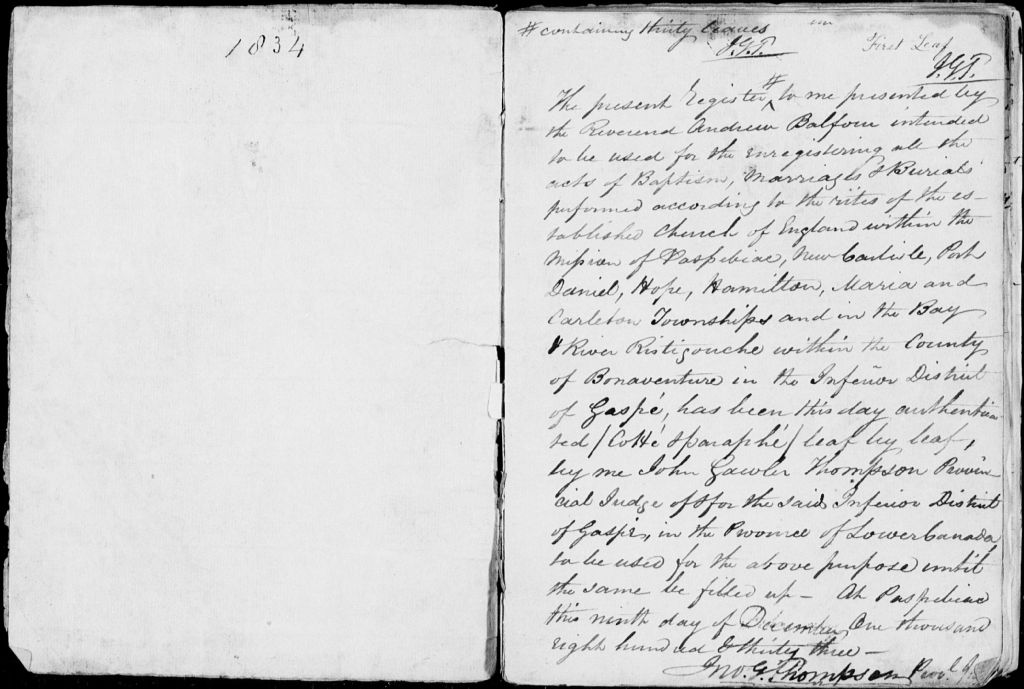 1834
# containing thirty leaves
J.G.T.
First Leaf
J.G.T.
The present Register # to me presented by
the Reverend Andrew Balfour intended
to be used for the enregistering all the
acts of Baptism, Marriages & Burials
performed according to the rites of the es-
tablished Church of England within the
Mission of Paspibiac, New Carlisle, Port
Daniel, Hope, Hamilton, Maria and
Carleton Townships and in the Bay
& River Ristigouche within the County
of Bonaventure in the Inferior District
of Gaspé, has been this day authentica
ted / Cotté & paraphé / leaf by leaf,
by me John Gawler Thompson Provin-
cial Judge of & for the said Inferior District
of Gaspé, in the Province of Lower Canada
to be used for the above purpose until
the same be filled up – At Paspibiac
this ninth day of December One thousand
eight hundred & thirty three –
Jno. G. Thompson Prov. J.